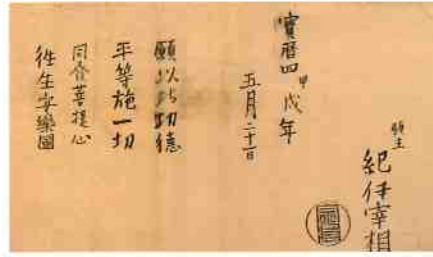 願主
紀伊宰相
寳暦四甲戌年
五月二十一日
願以此功徳
平等施一切
同發菩提心
往生安樂國